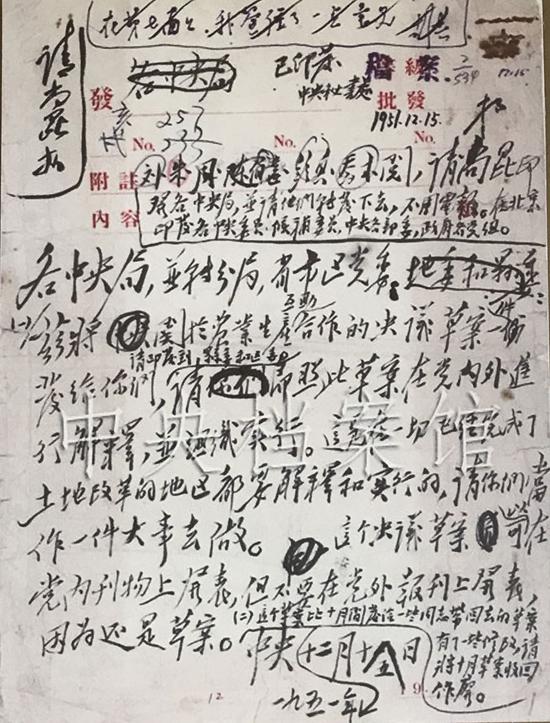 在第七面上，我修理了一点意见
请尚昆办
各中央局
已印发
中央秘书处
發 亥 257
代 No. 535
No.
批發 1951.12.15. No.
附註
内容
刘、朱、周、陈、彭、
请尚昆印
发各中央局，并请他们转发下去，不用电报。在北京
印发各中央委员
各中央局，并转分局，省市区党委：
(一)兹将关于农业生产互助合作的决议草案一份
发给你们，请即照此草案在党内外进
请印发到
行解释，并组织实行。这是在一切已经完成了
土地改革的地区都要解释和实行的，请你们当
作一件大事去做。这个决议草案可在
党内刊物上发表，但不要在党外报刊上发表，
因为还是草案。
(二)这个草案比十月间发给一些同志带回去的草案
有了一些修改，请
将十月草案收回
作废。
中央
十二月十五日
一九五一年
12
9.
中央档案馆